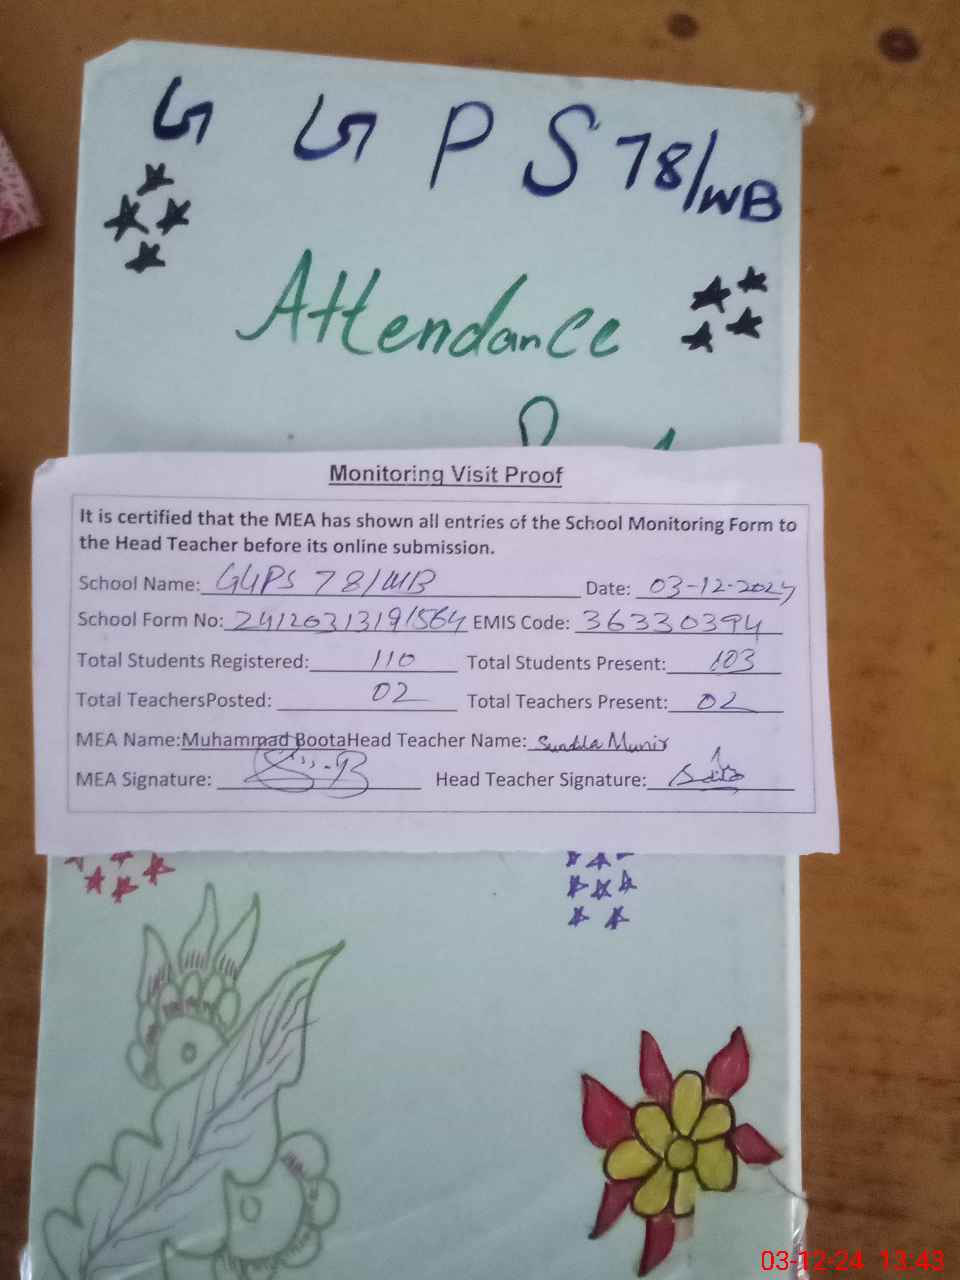 G G P S 78/WB
Attendance
Monitoring Visit Proof
It is certified that the MEA has shown all entries of the School Monitoring Form to
the Head Teacher before its online submission.
School Name: GGPS 78/WB Date: 03-12-2024
School Form No: EMIS Code: 36330394
Total Students Registered: 110 Total Students Present: 103
Total TeachersPosted: 02 Total Teachers Present: 02
MEA Name:Muhammad BootaHead Teacher Name: Munir
MEA Signature: Head Teacher Signature:
03-12-24 13:43